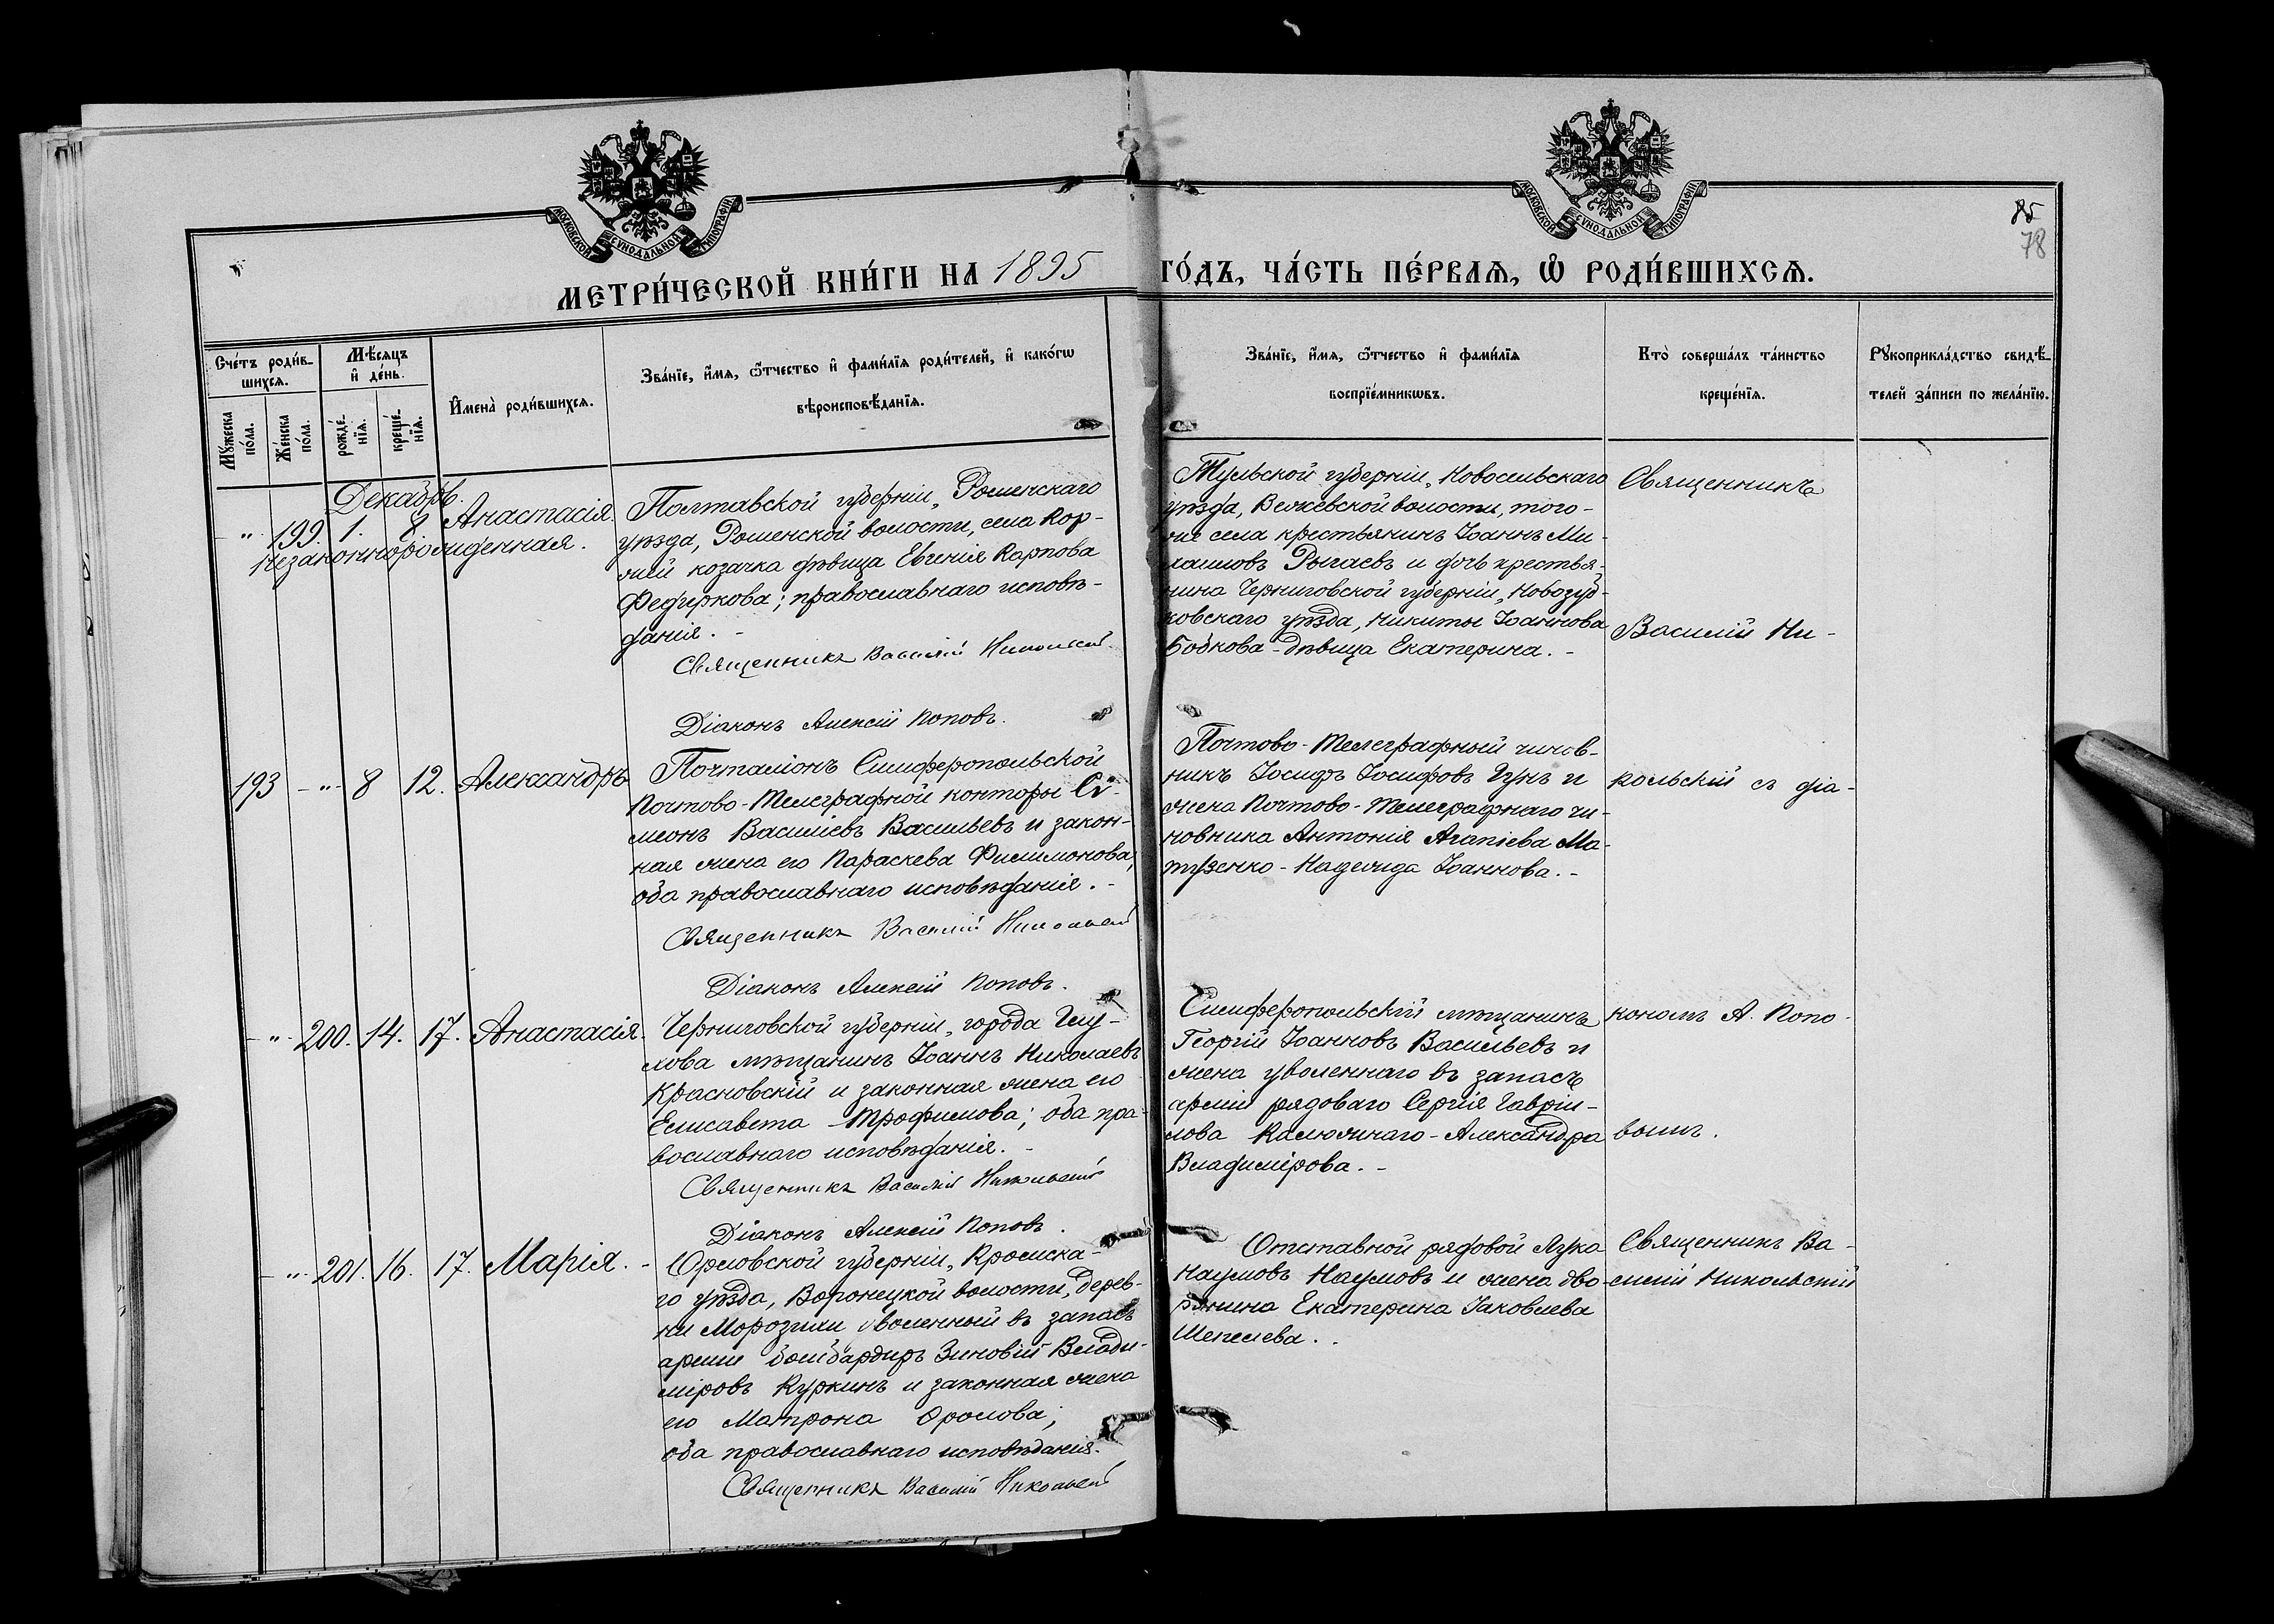 МОСКОВСКОЙ СУНОДАЛЬНОЙ ТИПОГРАФІИ
МОСКОВСКОЙ СУНОДАЛЬНОЙ ТИПОГРАФІИ
85
78
МЕТРИ́ЧЕСКОЙ КНИ́ГИ НА 1895 ГО́ДЪ, ЧА́СТЬ ПЕ́РВАѦ, Ѡ҆ РОДИ́ВШИХСѦ.
Сче́тъ роди́в-
шихсѧ.
Мꙋ́жеска
по́ла.
Же́нска
по́ла.
Мѣ́сѧцъ
и҆ де́нь.
рожде́-
нїѧ.
креще́-
нїѧ.
И҆мена̀ роди́вшихсѧ.
Зва́нїе, и҆́мѧ, ѻ҆́тчество и҆ фами́лїѧ роди́телей, и҆ како́гѡ
вѣроисповѣ́данїѧ.
Зва́нїе, и҆́мѧ, ѻ҆́тчество и҆ фами́лїѧ
воспрїе́мникѡвъ.
Кто̀ соверша́лъ та́инство
креще́нїѧ.
Рꙋкоприкла́дство свидѣ́-
телей за́писи по жела́нїю.
Декабрь.
-"- 199. 1. 8. Анастасія.
Незаконнорожденная.
Полтавской губерніи, Роменскаго
уѣзда, Роменской волости, села Кор-
жей козачка дѣвица Евгенія Карпова
Федиркова; православнаго исповѣ-
данія. -
Священникъ Василій Никольскій.
Діаконъ Алексій Поповъ.
Тульской губерніи, Новосильскаго
уѣзда, волости, того-
же села крестьянинъ Іоаннъ Ми-
хаиловъ и дочь крестья-
нина Черниговской губерніи, Новозуб-
ковскаго уѣзда, Никиты Іоаннова
Бобкова - дѣвица Екатерина. -
Священникъ
Василій Ни-
193 -"- 8 12. Александръ
Почталіонъ Симферопольской
Почтово-Телеграфной конторы Си-
меонъ Василіевъ Васильевъ и закон-
ная жена его Параскева Филимонова;
оба православнаго исповѣданія. -
Священникъ Василій Никольскій
Діаконъ Алексій Поповъ.
Почтово-Телеграфный чинов-
никъ Іосифъ Іосифовъ и
жена Почтово-Телеграфнаго чи-
новника Антонія Агапіева Ма-
тузенко - Надежда Іоаннова. -
кольскій съ діа-
-"- 200. 14. 17. Анастасія.
Черниговской губерніи, города Глу-
хова мѣщанинъ Іоаннъ Николаевъ
Красновскій и законная жена его
Елисавета Трофимова; оба пра-
вославнаго исповѣданія. -
Священникъ Василій Никольскій
Діаконъ Алексій Поповъ.
Симферопольскій мѣщанинъ
Георгій Іоанновъ Васильевъ и
жена уволеннаго въ запасъ
арміи рядоваго Сергія Гавріи-
лова Калюжнаго - Александра
Владимірова. -
кономъ А. Попо-
вымъ.
-"- 201. 16. 17. Марія. -
Орловской губерніи, Кромска-
го уѣзда, Воронецкой волости, дерев-
ни уволенный въ запасъ
арміи бомбардиръ Зиновій Влади-
міровъ Куркинъ и законная жена
его Матрона Фролова;
оба православнаго исповѣданія.
Священникъ Василій Никольскій
Отставной рядовой Лука
Наумовъ Наумовъ и жена дво-
рянина Екатерина Іаковлева
Шепелева. -
Священникъ Ва-
силій Никольскій